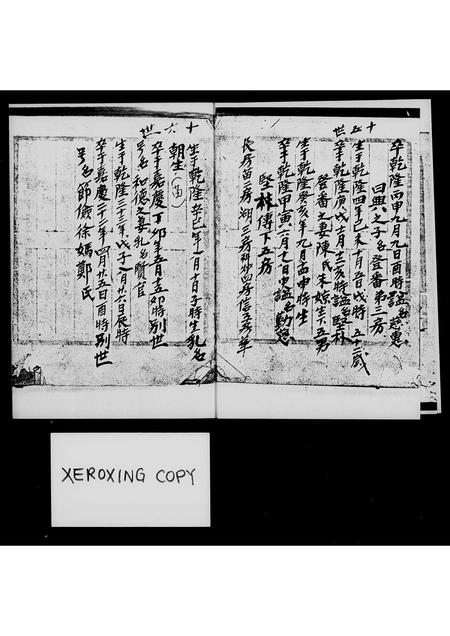 卒乾隆丙申九月九日酉時諡名慈惠
曰興之子名登番第三房
十五世
生于乾隆四年己未十月五日戌時五十二歲
卒于乾隆庚戌十二月廿二亥時諡名堅朴
登番之妻陳氏朱娘生下五男
生于乾隆癸亥年九月 申時生
卒于乾隆甲寅六月十一日申諡名勤慈
堅朴傳下五房
長房苗二房朔三房科抄四房信五房年
十六世
生于乾隆辛巳年八月十日子時生乳名
朝生(苗)
卒于嘉慶丁卯年五月十五卯時別世
号名和德之妻乳名賢官
生于乾隆三十三年戊子八月廿六日辰時
卒于嘉慶二十年四月廿五日酉時別世
号名節儉徐媽鄭氏
XEROXING COPY